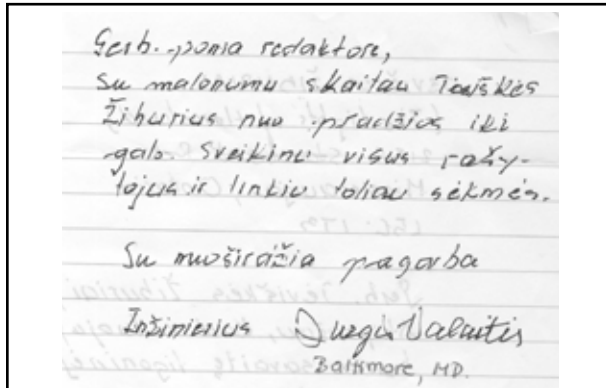 Gerb. ponia redaktore,
Su malonumu skaitau Tėviškės
Žiburius nuo pradžios iki
galo. Sveikinu visus rašy-
tojus ir linkiu toliau sėkmės.
Su nuoširdžia pagarba
Inžinierius Jurgis Valaitis
Baltimore, MD.